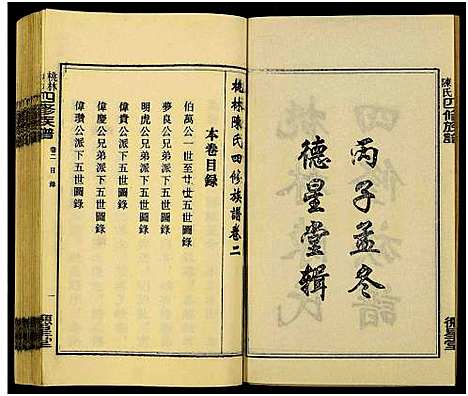 陳氏四修族譜
丙子孟冬
德星堂辑
德星堂
桃林陳氏四修族譜卷二
本卷目錄
伯萬公一世至廿世五圖錄
夢良公兄弟派下五世圖錄
明虎公兄弟派下五世圖錄
偉貴公派下五世圖錄
偉慶公兄弟派下五世圖錄
偉瓚公派下五世圖錄
桃林
四修族譜
卷二 目錄
一
德星堂